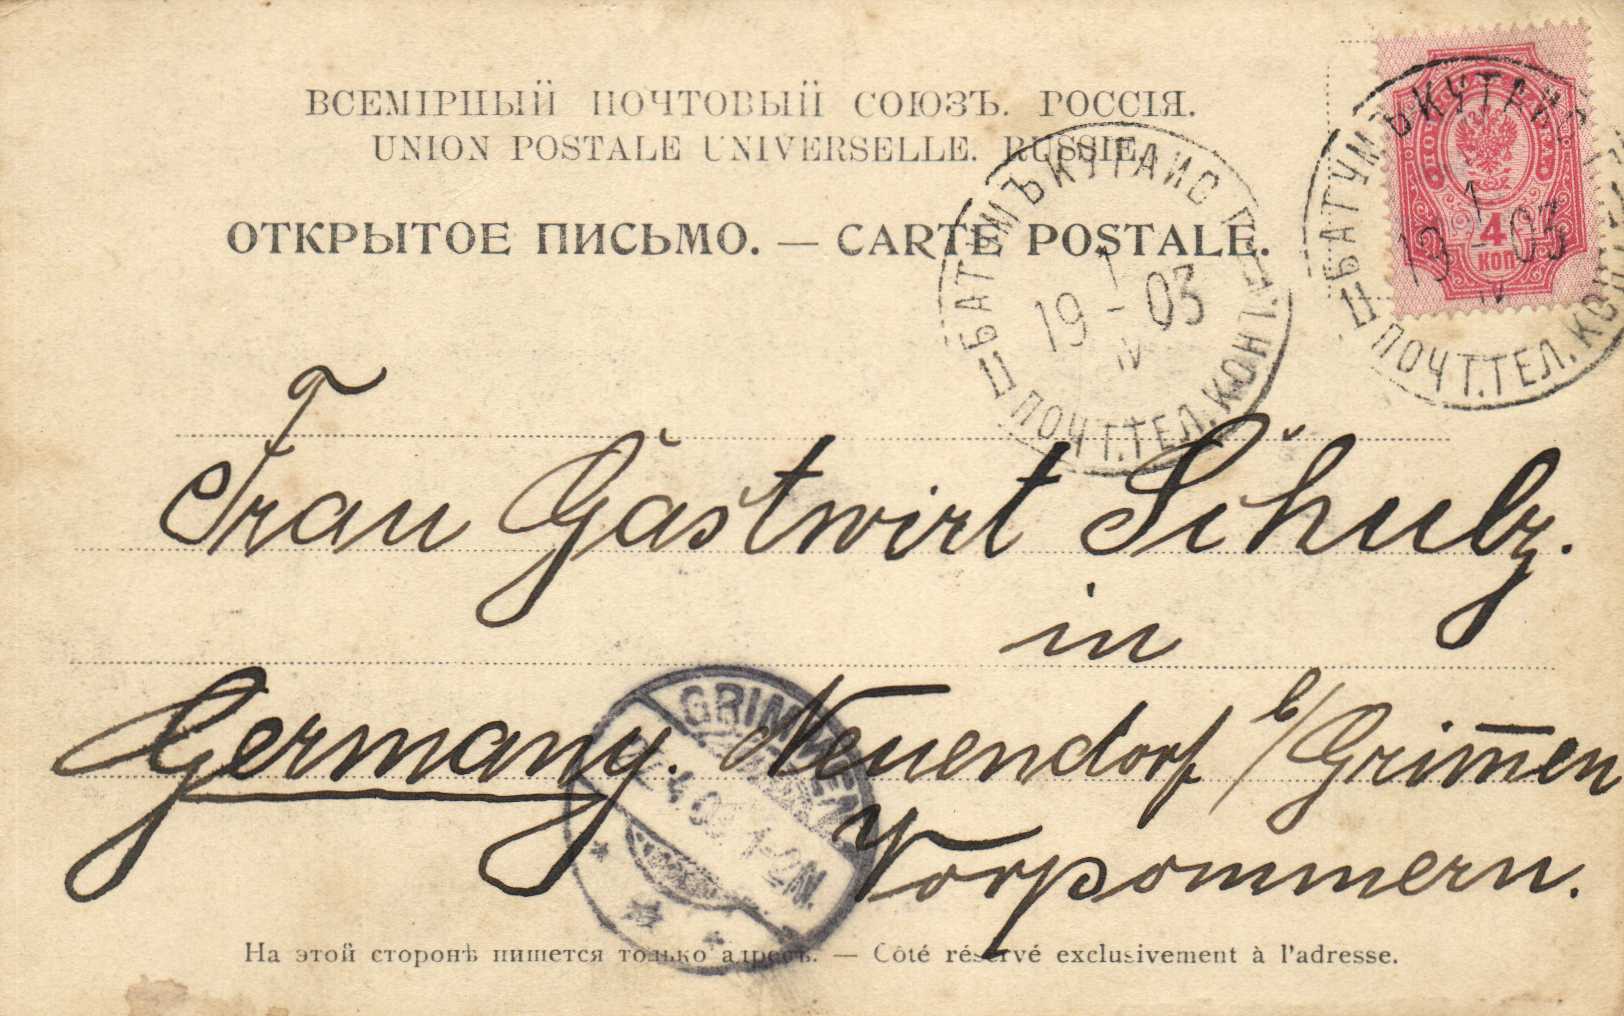 ВСЕМІРНЫЙ ПОЧТОВЫЙ СОЮЗЪ. РОССІЯ.
UNION POSTALE UNIVERSELLE. RUSSIE.
ОТКРЫТОЕ ПИСЬМО. — CARTE POSTALE.
БАТУМЪ КУТАИС Г.
1
19 - 03
IV
ПОЧТ.ТЕЛ.КОНТ.
БАТУМЪ КУТАИС
1
19 - 03
IV
ПОЧТ.ТЕЛ.КОН
4
КОП
Frau Gastwirt Schulz.
in
Germany. Neuendorf b/Grim̅en
Vorpommern.
GRIMMEN
4 03 1-2N.
На этой сторонѣ пишется только адресъ. — Côté réservé exclusivement à l'adresse.